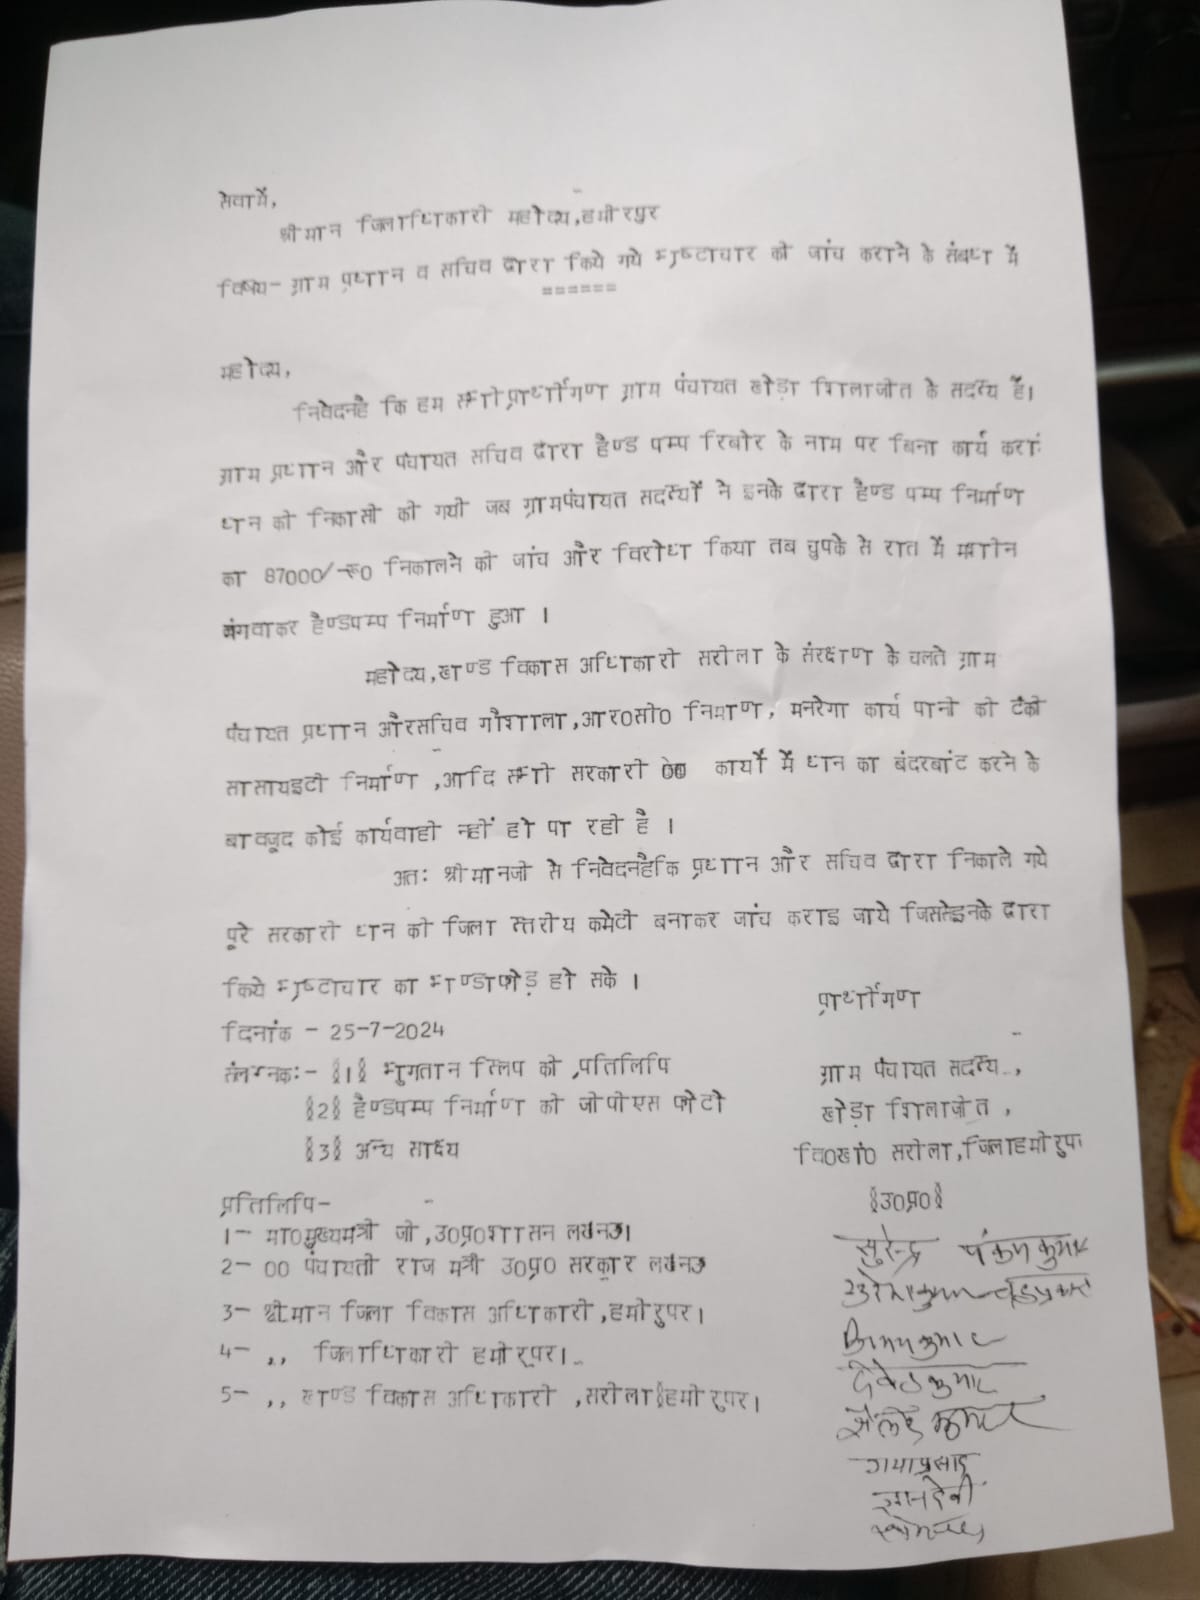 सेवामें,
श्रीमान जिलाधिकारी महोदय,हमीरपुर
विषय- ग्राम प्रधान व सचिव द्वारा किये गये भ्रष्टाचार की जांच कराने के संबंध में
======
महोदय,
निवेदनहै कि हम सभीप्रार्थीगण ग्राम पंचायत खेड़ा शिलाजीत के सदस्य हैं।
ग्राम प्रधान और पंचायत सचिव द्वारा हैण्ड पम्प रिबोर के नाम पर बिना कार्य कराः
धन की निकासी की गयी जब ग्रामपंचायत सदस्यों ने इनके द्वारा हैण्ड पम्प निर्माण
का 87000/-रू0 निकालने की जांच और विरोध किया तब चुपके से रात में मशीन
मंगवाकर हैण्डपम्प निर्माण हुआ ।
महोदय,खण्ड विकास अधिकारी सरीला के संरक्षण के चलते ग्राम
पंचायत प्रधान औरसचिव गौशाला,आर0सी0 निर्माण, मनरेगा कार्य पानी की टंकी
सासायइटी निर्माण ,आदि सभी सरकारी कार्यों में धन का बंदरबांट करने के
बावजूद कोई कार्यवाही नहीं हो पा रही है ।
अतः श्रीमानजी से निवेदनहैकि प्रधान और सचिव द्वारा निकाले गये
पूरे सरकारी धन की जिला स्तरीय कमेटी बनाकर जांच कराइ जाये जिससेइनके द्वारा
किये भ्रष्टाचार का भाण्डाफोड़ हो सके ।
प्रार्थीगण
दिनांक - 25-7-2024
संलग्नकः- §1§ भुगतान स्लिप की प्रतिलिपि
ग्राम पंचायत सदस्य..,
§2§ हैण्डपम्प निर्माण की जीपीएस फोटो
खेड़ा शिलाजीत ,
§3§ अन्य साक्ष्य
वि0खं0 सरीला,जिलाहमीरुपा
प्रतिलिपि-
§उ0प्र0§
1- मा0मुख्यमंत्री जी ,उ0प्र0शासन लखनउ।
सुरेन्द्र पंकज कुमार
2- 00 पंचायती राज मंत्री उ0प्र0 सरकार लखनउ
3- श्रीमान जिला विकास अधिकारी,हमीरुपर।
4- ,, जिलाधिकारी हमीरुपर।..
5- ,, खण्ड विकास अधिकारी ,सरीला§हमीरुपर।
देवेन्द्र कुमार
शैलेन्द्र कुमार
गयाप्रसाद
ज्ञानदेवी